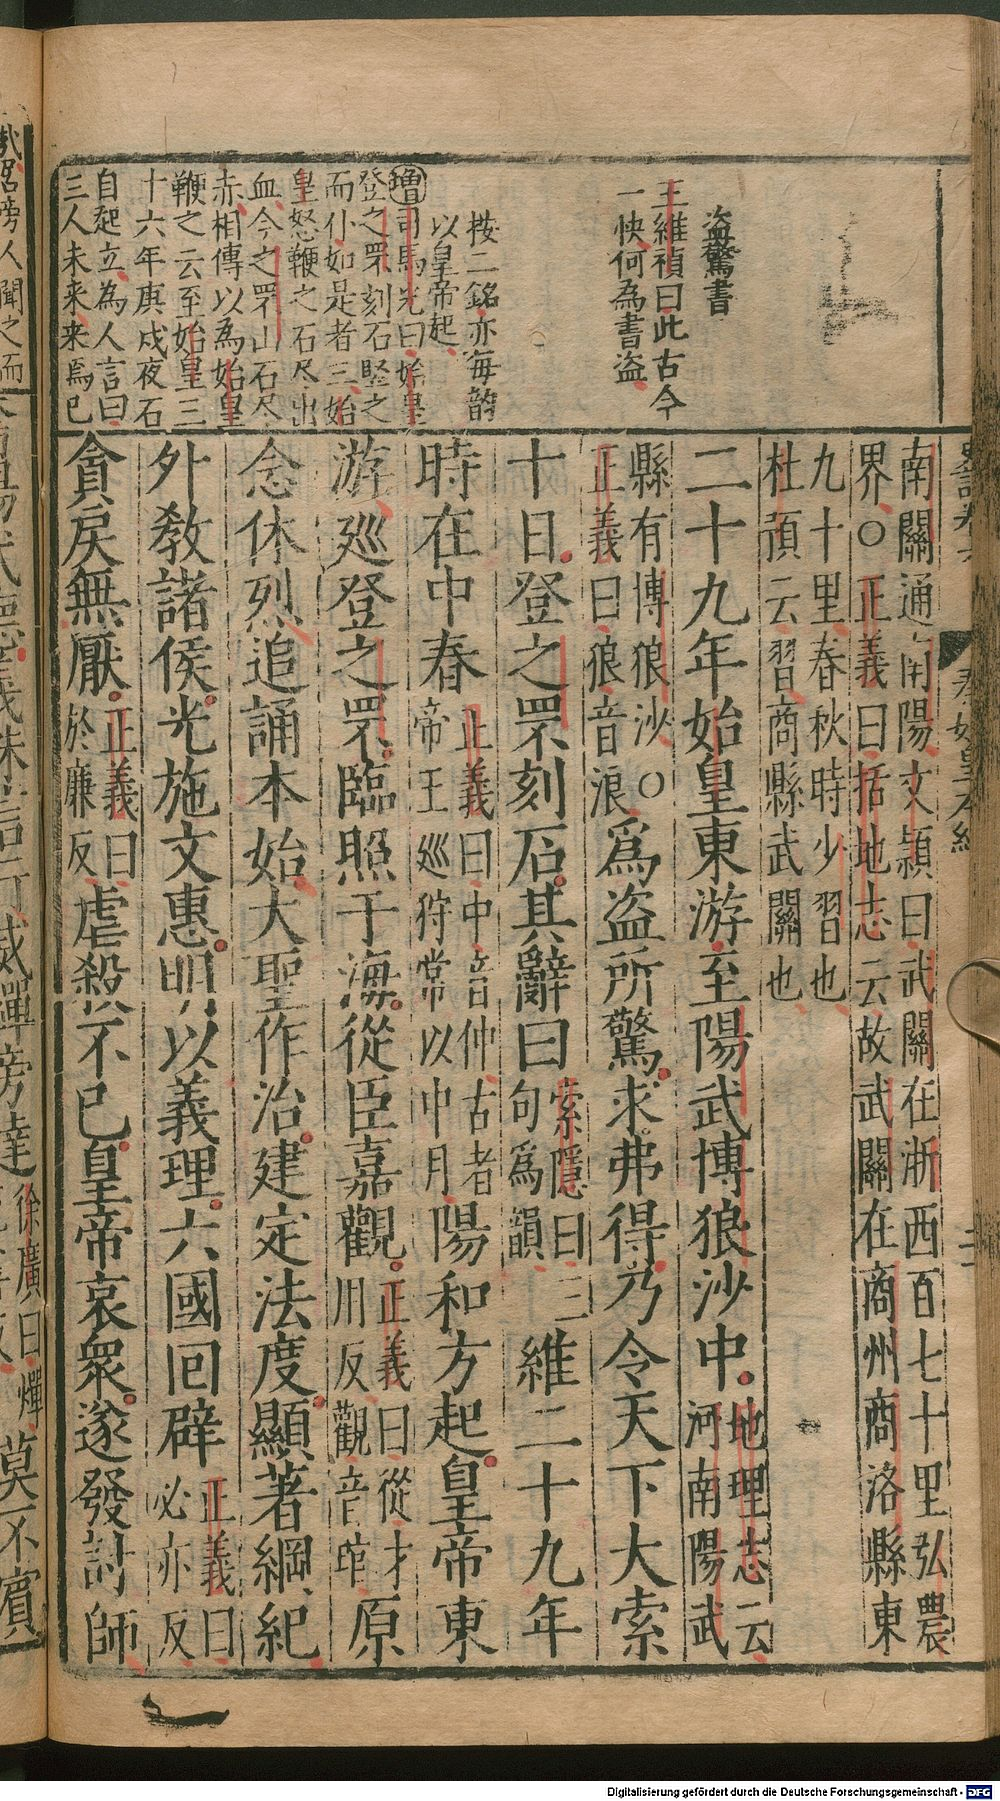 盜驚書
王維禎曰此古今
一快何為書盜
按二銘亦每韵
以皇帝起
增司馬光曰始皇
登之罘刻石堅之
而仆如是者三始
皇怒鞭之石尽出
血今之罘山石尽
赤相傳以為始皇
鞭之云至始皇三
十六年庚戌夜石
自起立為人言曰
三人未来来焉已
南關通南陽文穎曰武關在浙西百七十里弘農
界○正義曰括地志云故武關在商州商洛縣東
九十里春秋時少習也
杜預云習商縣武關也
二十九年始皇東游至陽武博狼沙中地理志云
河南陽武
縣有博狼沙○
正義曰狼音浪
爲盜所驚求弗得乃令天下大索
十日登之罘刻石其辭曰索隱曰三
句爲韻
維二十九年
時在中春正義曰中音仲古者
帝王巡狩常以中月
陽和方起皇帝東
游巡登之罘臨照于海從臣嘉觀正義曰從才
用反觀音琯
原
念休烈追誦本始大聖作治建定法度顯著綱紀
外敎諸侯光施文惠明以義理六國回辟正義曰
必亦反
貪戾無厭正義曰
於廉反
虐殺不已皇帝哀衆遂發討師
秦始皇本紀
Digitalisierung gefördert durch die Deutsche Forschungsgemeinschaft - DFG